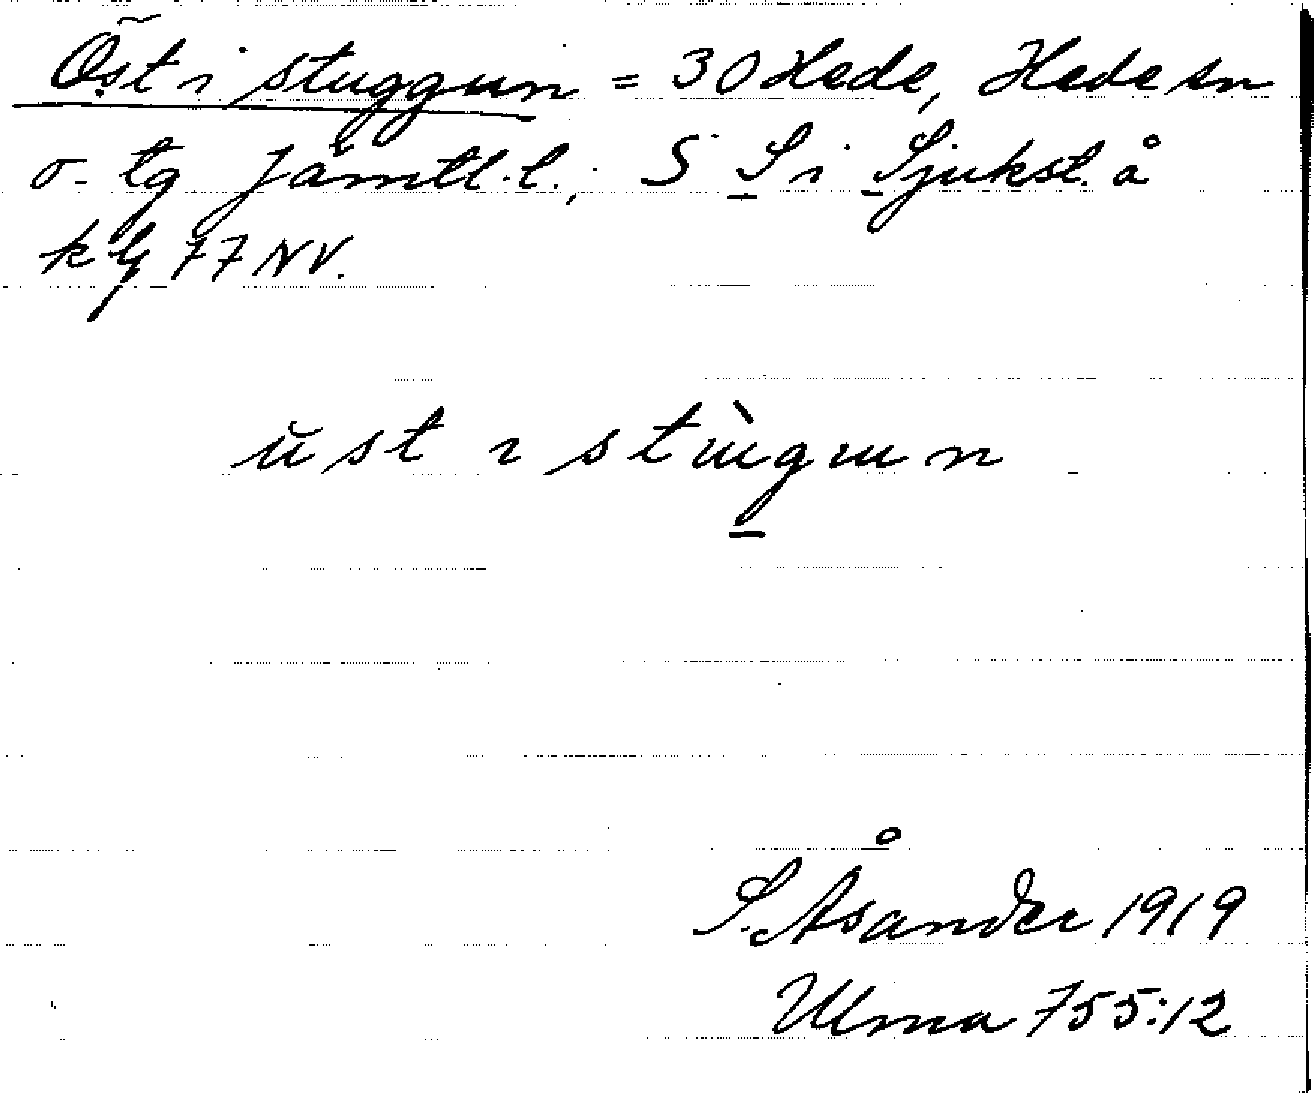 Öst i stuggun = 30 Hede, Hede sn
o. tg Jämtl. l., S S i Sjukst. å
k bl 77 NV.
ust ı stùgun
S. Åsander 1919
Ulma 755:12